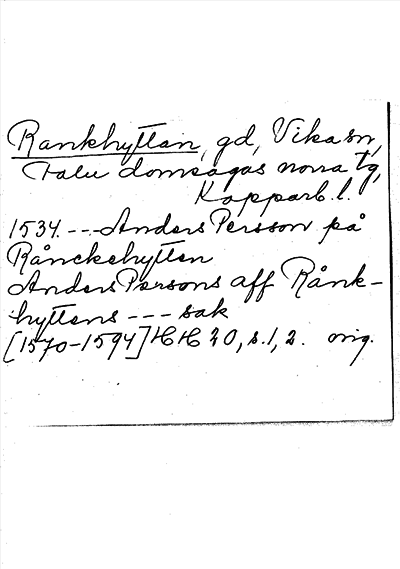 Rankhyttan, gd, Vika sn,
Falu domsagas norra tg,
Kopparb. l.
1534 --- Anders Persson på
Rånckehytten
Anders Persons aff Rånk-
hyttens --- sak
[1570-1594] HH 20, s. 1, 2. orig.